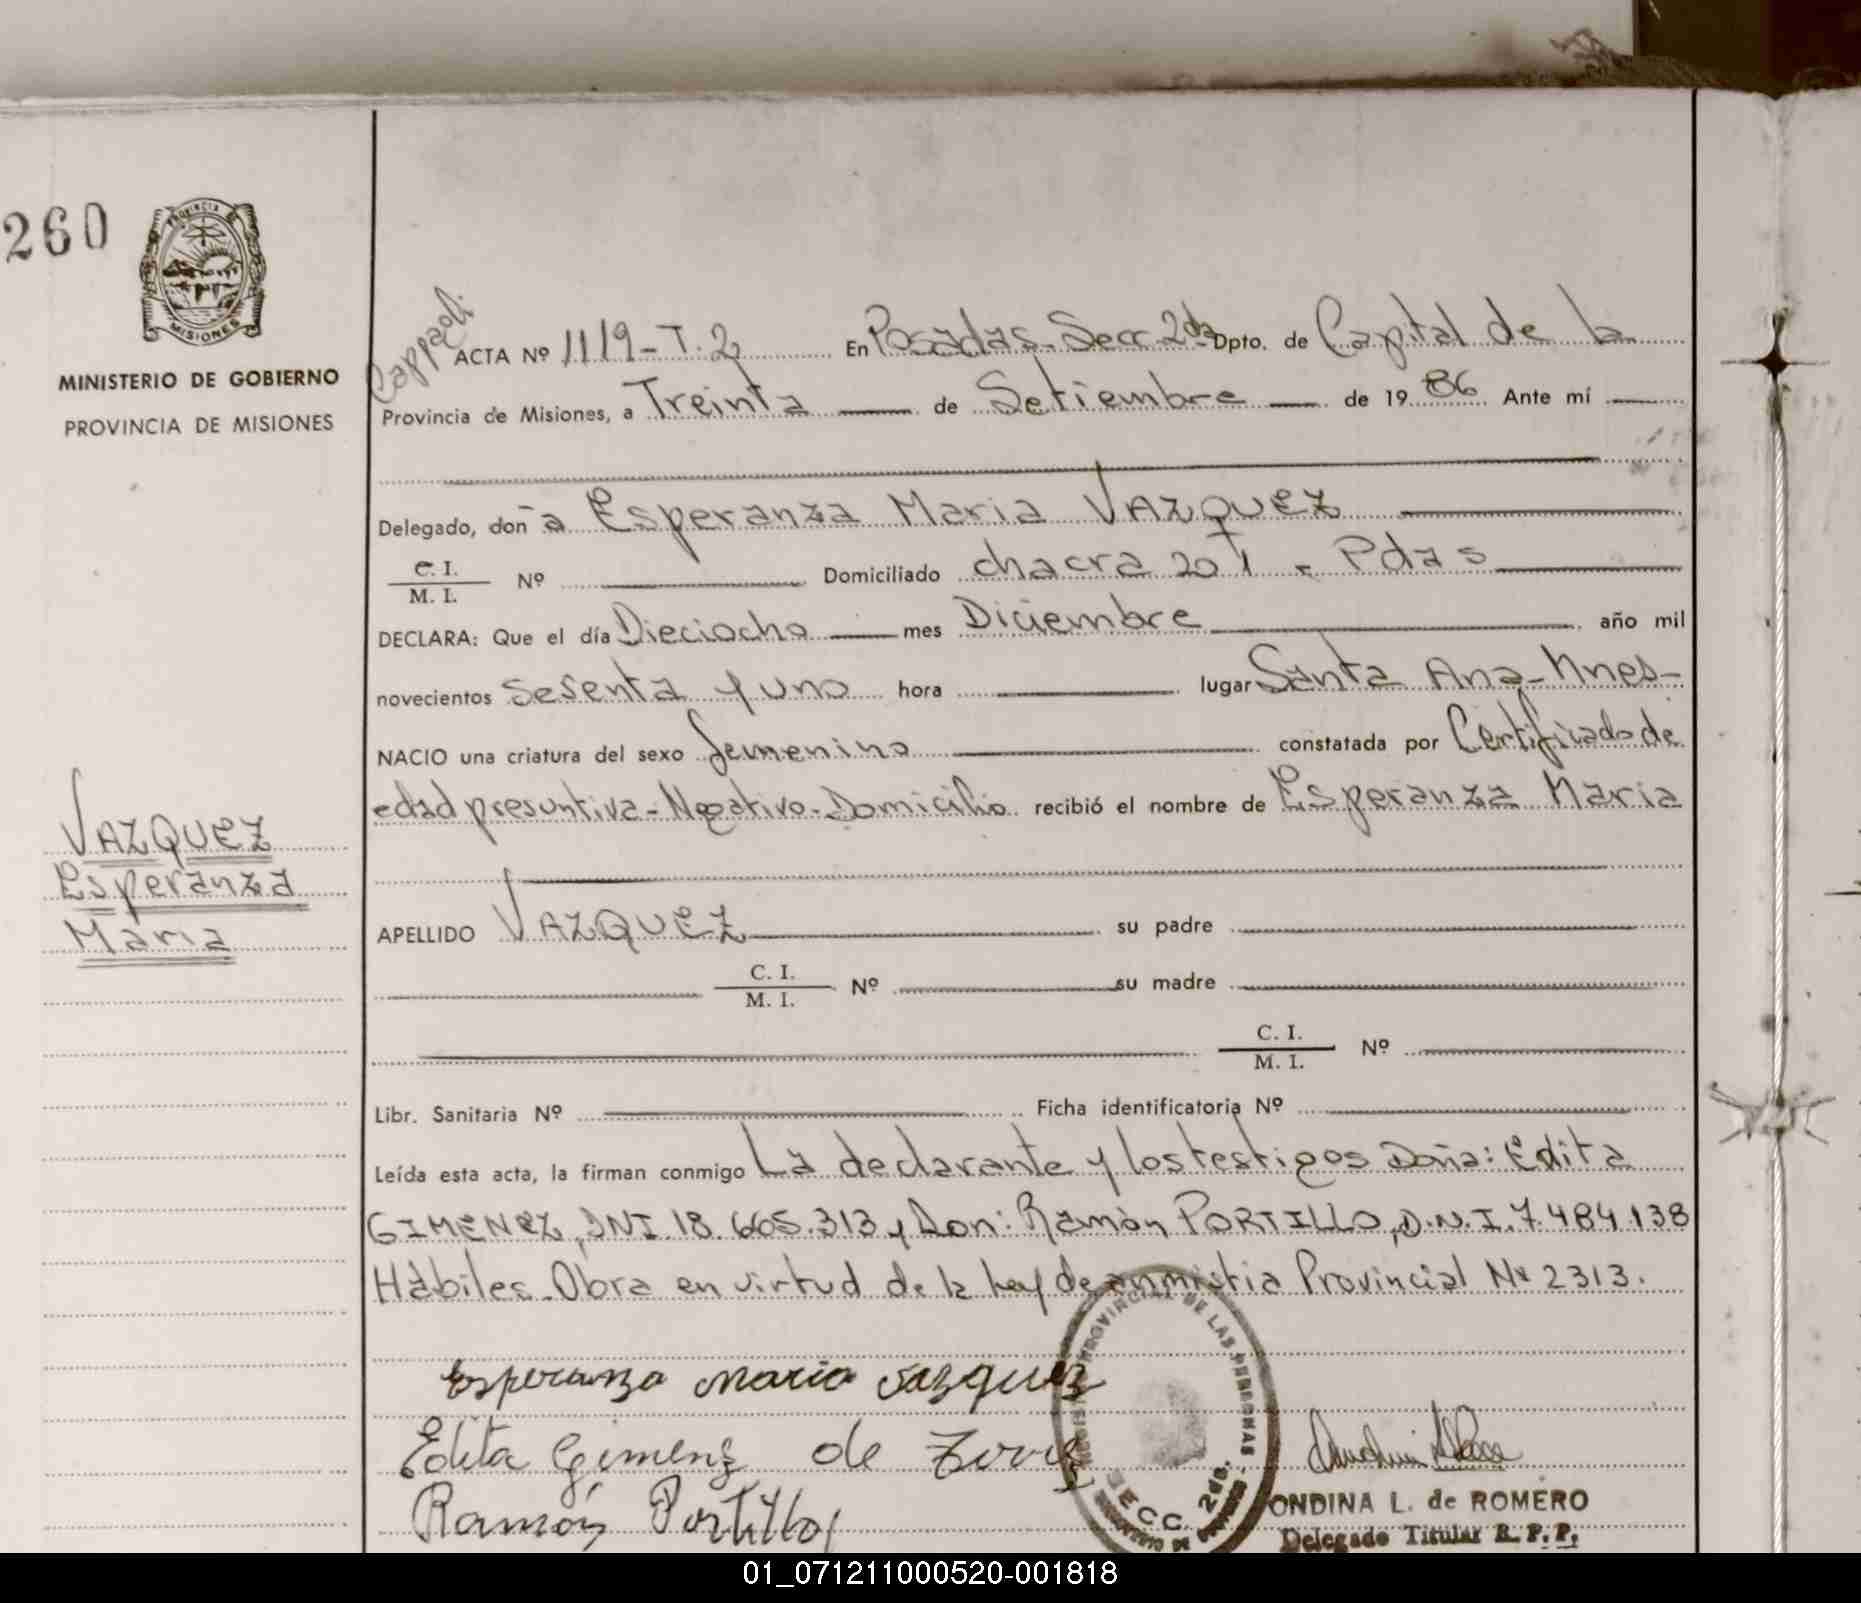 260
PROVINCIA DE
MISIONES
MINISTERIO DE GOBIERNO
PROVINCIA DE MISIONES
Cappaoli
ACTA Nº 1119-T.2 En Posadas-Secc 2da Dpto. de Capital de la
Provincia de Misiones, a Treinta de Setiembre de 19 86 Ante mí
Delegado, don ña Esperanza Maria VAZQUEZ
C. I.
M. I. Nº Domiciliado chacra 201 - Pdas
DECLARA: Que el día Dieciocho mes Diciembre año mil
novecientos sesenta y uno hora lugar Santa Ana-Mnes-
NACIO una criatura del sexo femenino constatada por Certificado de
edad presuntiva-Negativo-Domicilio recibió el nombre de Esperanza Maria
VAZQUEZ
Esperanza
Maria
APELLIDO VAZQUEZ su padre
C. I.
M. I. Nº su madre
C. I.
M. I. Nº
Libr. Sanitaria Nº Ficha identificatoria Nº
Leída esta acta, la firman conmigo La declarante y los testigos Doña: Edita
GIMENEZ, DNI. 18.605.313 y Don: Ramón PORTILLO, D.N.I. 7.484.138
Hábiles-Obra en virtud de la ley de anmistia Provincial Nº 2313.
Esperanza Maria Vazquez
Edita Gimenz de
Ramón Portillo
PROVINCIAL DE LAS PERSONAS
SECC. 2da.
ONDINA L. de ROMERO
Delegado Titular R. P. P.
01_071211000520-001818